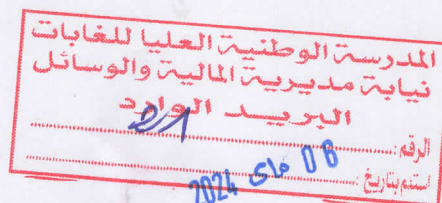 المدرسة الوطنية العليا للغابات
نيابة مديرية المالية والوسائل
البريد الوارد
الرقم :
استلم بتاريخ : 08 ماي 2024